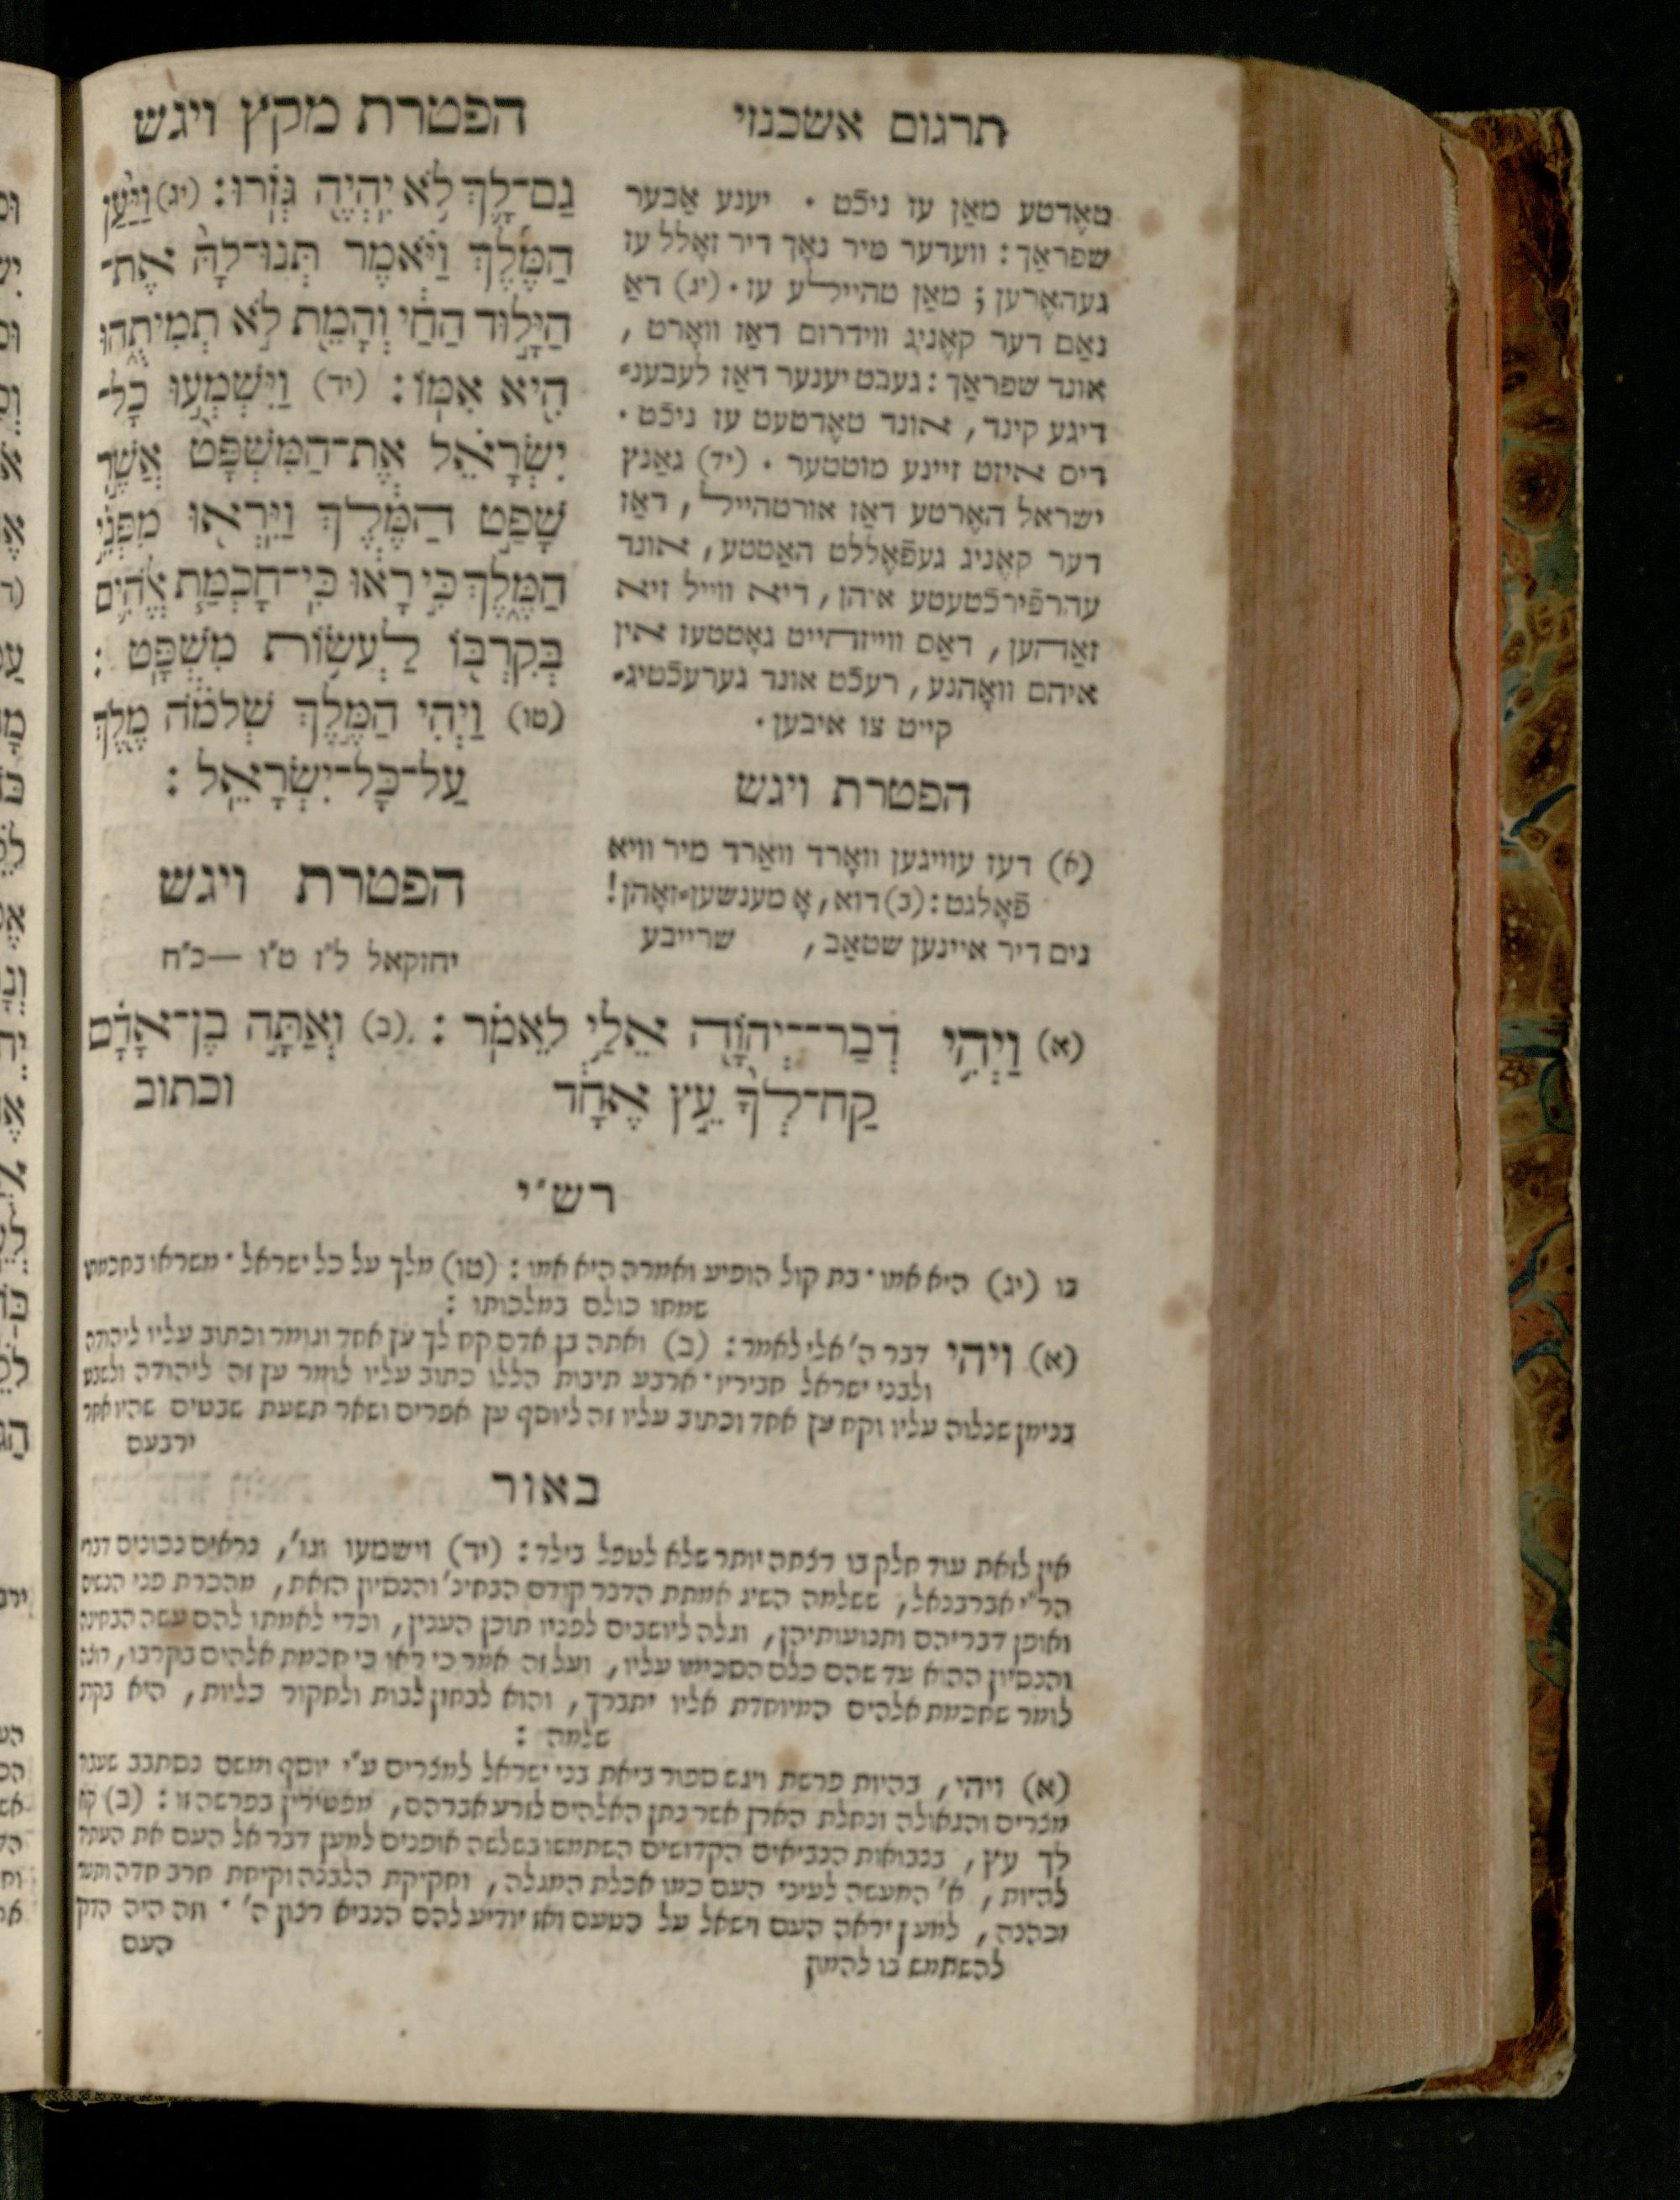 תרגום אשכנזי
הפטרת מקץ ויגש
גַם־לָךְ לֹא יִהְיֶה גְּזֹרוּ׃ (יג) וַיַּעַן
הַמֶּלֶךְ וַיֹּאמֶר תְּנוּ־לָהּ אֶת־
הַיָּלוּד הַחַי וְהָמֵת לֹא תְמִיתֻהוּ
הִיא אִמּוֹ׃ (יד) וַיִּשְׁמְעוּ כָל־
יִשְׂרָאֵל אֶת־הַמִּשְׁפָּט אֲשֶׁר
שָׁפַט הַמֶּלֶךְ וַיִּרְאוּ מִפְּנֵי
הַמֶּלֶךְ כִּי רָאוּ כִּי־חָכְמַת אֱלֹהִים
בְּקִרְבּוֹ לַעְשׂוֹת מִשְׁפָּט׃
(טו) וַיְהִי הַמֶּלֶךְ שְׁלֹמֹה מֶלֶךְ
עַל־כָּל־יִשְׂרָאֵל׃
הפטרת ויגש
יחזקאל ל״ז ט״ו — כ״ח
טאָדטע מאַן עז ניכֿט · יענע אַבער
שפראַך: וועדער מיר נאָך דיר זאָלל עז
געהאָרען; מאַן טהיילע עז· (יג) דאַ
נאַם דער קאָניג ווידרום דאַז וואָרט,
אונד שפראַך: געבט יענער דאַז לעבענ־
דיגע קינד, אונד טאָדטעט עז ניכֿט·
דיס איזט זיינע מוטטער · (יד) גאַנץ
ישראל האָרטע דאַז אורטהייל, דאַז
דער קאָניג געפֿאָללט האַטטע, אונד
עהרפֿירכֿטעטע איהן, דיא ווייל זיא
זאַהען, דאַס ווייזהייט גאָטטעז אין
איהם וואָהנע, רעכֿט אונד גערעכֿטיג־
קייט צו איבען·
הפטרת ויגש
(א) דעז עוויגען וואָרד וואַרד מיר וויא
פֿאָלגט: (ב) דוא, אָ מענשען־זאָהן!
נים דיר איינען שטאַב, שרייבע
(א) וַיְהִי דְבַר־יְהוָֹה אֵלַי לֵאמֹר׃ (ב) וְאַתָּה בֶן־אָדָם
קַח־לְךָ עֵץ אֶחָד וכתוב
רש״י
בו (יג) היא אמו · בת קול הופיע ואמרה היא אמו: (טו) מלך על כל ישראל · משראו בחכמתו
שמחו כולם במלכותו:
(א) ויהי דבר ה' אלי לאמר: (ב) ואתה בן אדם קח לך עץ אחד וגומר וכתוב עליו ליהודה
ולבני ישראל חביריו · ארבע תיבות הללו כתוב עליו לומר עץ זה ליהודה ולשבט
בנימן שנלוה עליו וקח עץ אחד וכתוב עליו זה ליוסף עץ אפרים ושאר תשעת שבטים שהיו אחר
ירבעם
באור
אין לזאת עוד חלק בו רצתה יותר שלא לטפל בילד: (יד) וישמעו וגו', נראים נכונים דברי
הר״י אברבנאל, ששלמה השיג אמתת הדבר קודם הבחינ' והנסיון הזאת, מהכרת פני הנשים
ואופן דבריהם ותנועותיהן, וגלה ליושבים לפניו תוכן הענין, וכדי לאמתו להם עשה הבחינה
והנסיון ההוא עד שהם כלם הסכימו עליו, ועל זה אמר כי ראו כי חכמת אלהים בקרבו, רוצה
לומר שחכמת אלהים המיוחדת אליו יתברך, והוא לבחון לבות ולחקור כליות, היא בקרב
שלמה:
(א) ויהי, בהיות פרשת ויגש ספור ביאת בני ישראל למצרים ע״י יוסף ומשם נסתבב שעבוד
מצרים והגאולה ונחלת הארץ אשר נתן האלהים לזרע אברהם, מפטירין בפרשה זו: (ב) קח
לך עץ, בנבואות הנביאים הקדושים השתמשו בשלשה אופנים למען דבר אל העם את העתיד
להיות, א' המעשה לעיני העם כמו אכלת המגלה, וחקיקת הלבנה וקיחת חרב חדה
וכהנה, למען יראה העם וישאל על הטעם ואז יודיע להם הנביא רצון ה' · וזה היה הדק
להשתמש בו להמון העם